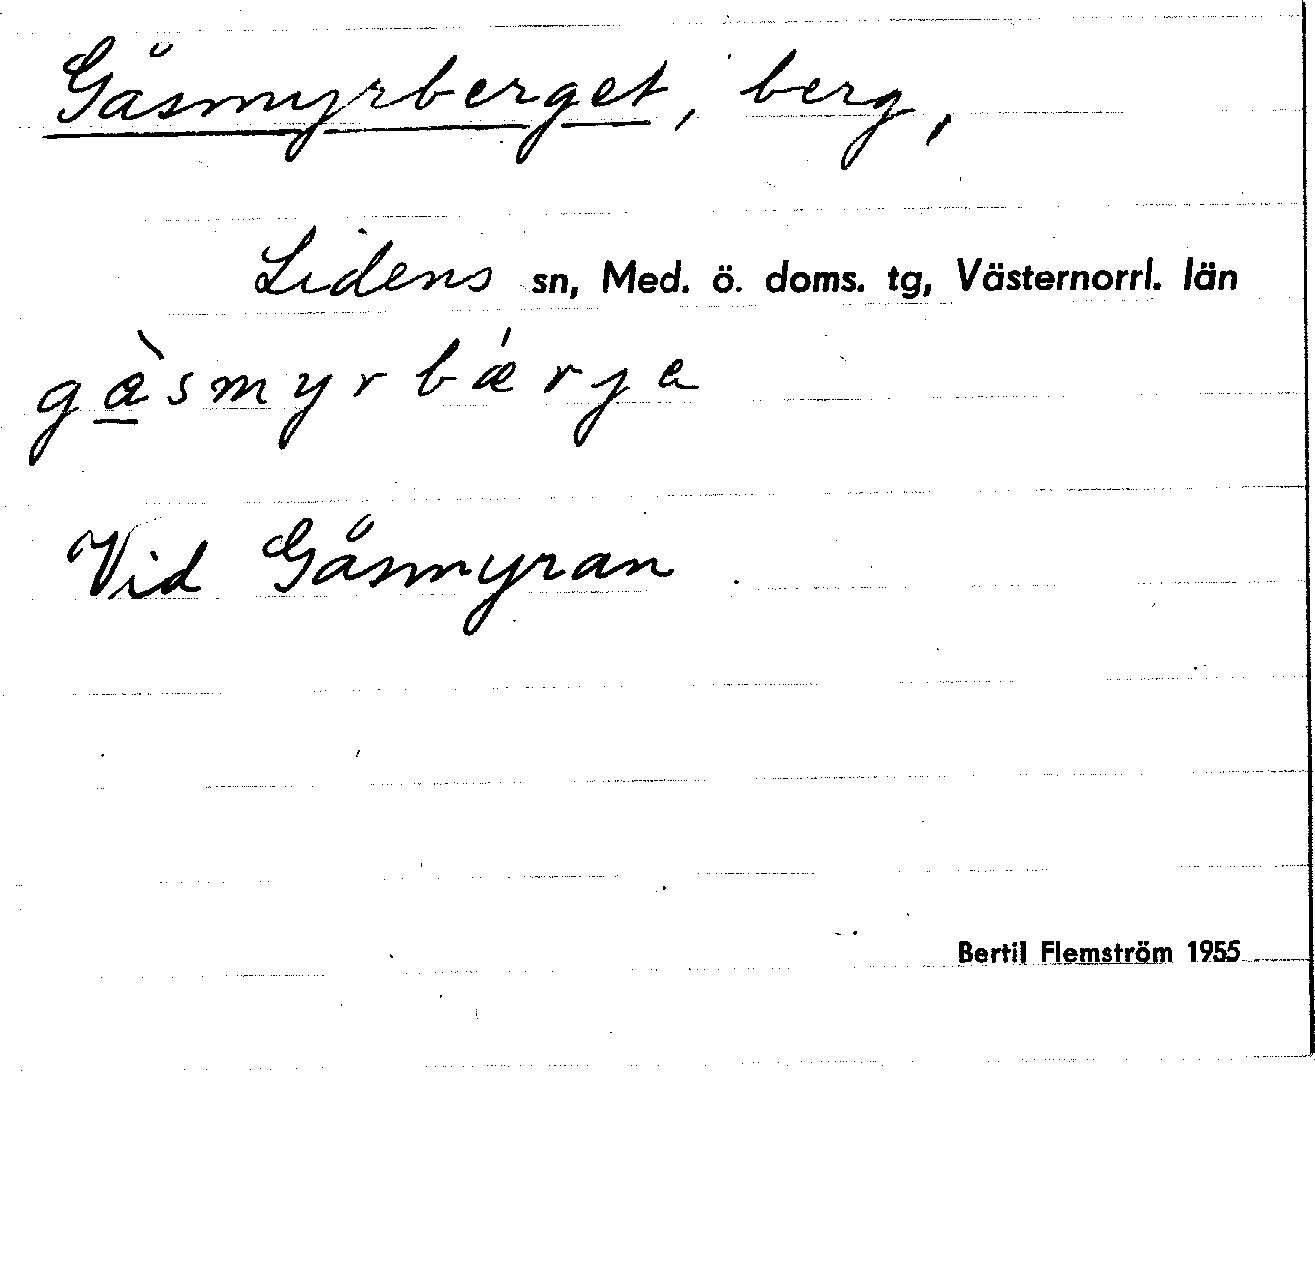 Gåsmyrberget, berg,
Lidens sn, Med. ö. doms. tg, Västernorrl. län
gæ̀smyrbǽrje
Vid Gåsmyran
Bertil Flemström 1955